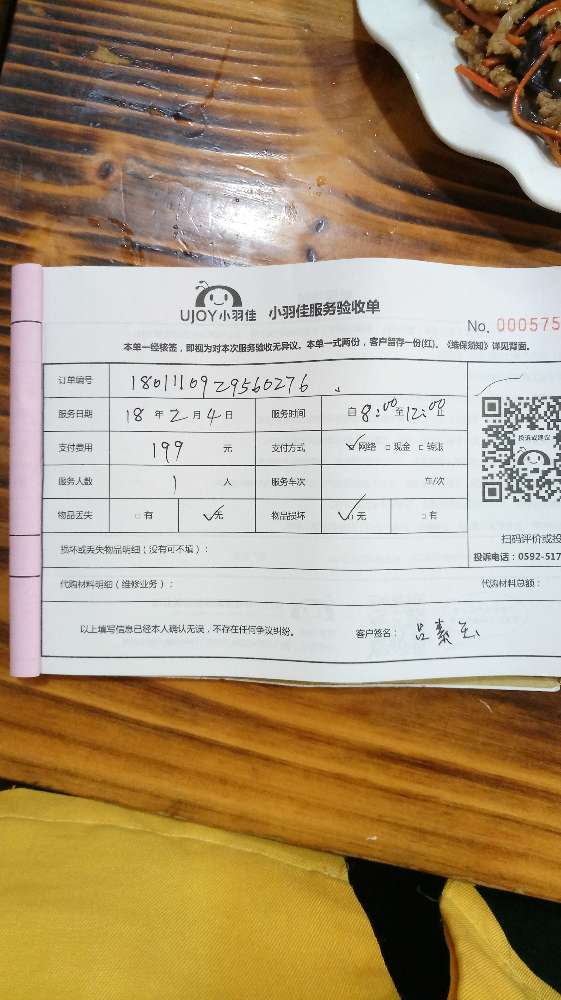 UJOY小羽佳 小羽佳服务验收单
No. 000575
本单一经核签，即视为对本次服务验收无异议。本单一式两份，客户留存一份(红)。《维保须知》详见背面。
订单编号 1801110929560276
服务日期 18 年 2 月 4 日 服务时间 自 8:00 至 12:00 止
支付费用 199 元 支付方式 网络 现金 转账
投诉或建议
服务人数 1 人 服务车次 车/次
物品丢失 有 无 物品损坏 无 有
扫码评价或投
投诉电话：0592-517
损坏或丢失物品明细（没有可不填）：
代购材料明细（维修业务）： 代购材料总额：
以上填写信息已经本人确认无误，不存在任何争议纠纷。 客户签名：